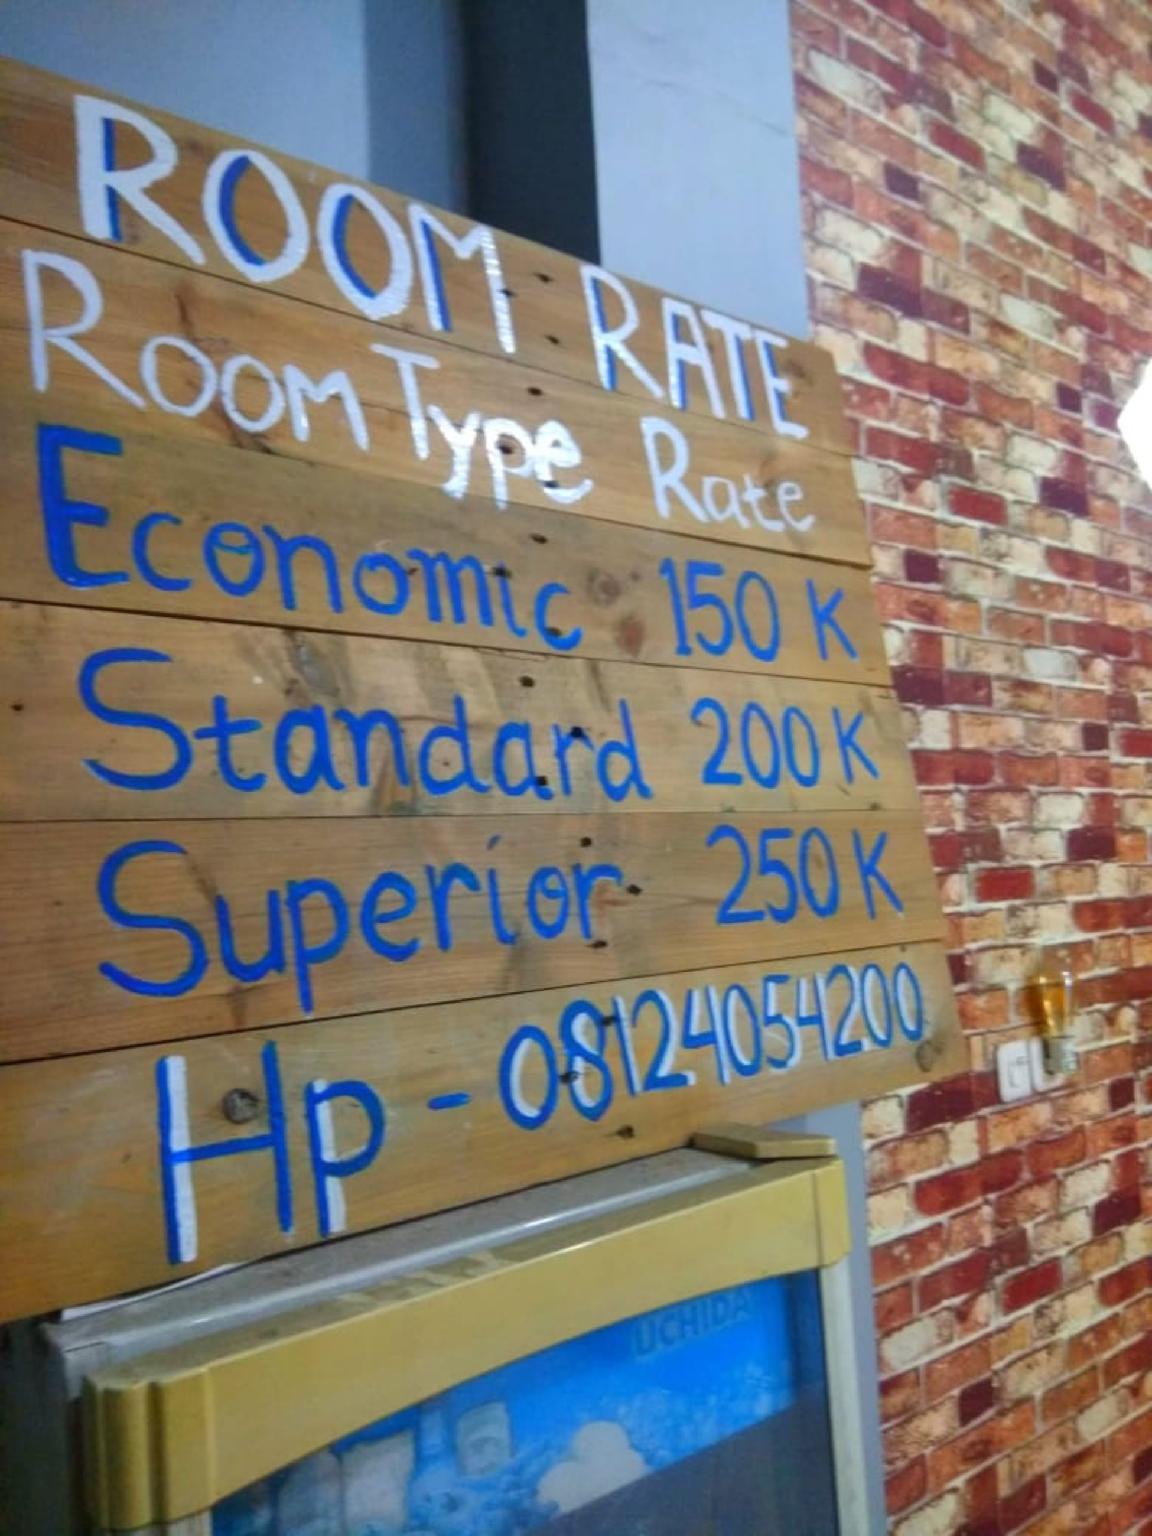 ROOM RATE
Room Type Rate
Economic 150 K
Standard 200 K
Superior 250 K
Hp - 081240541200
UCHIDA